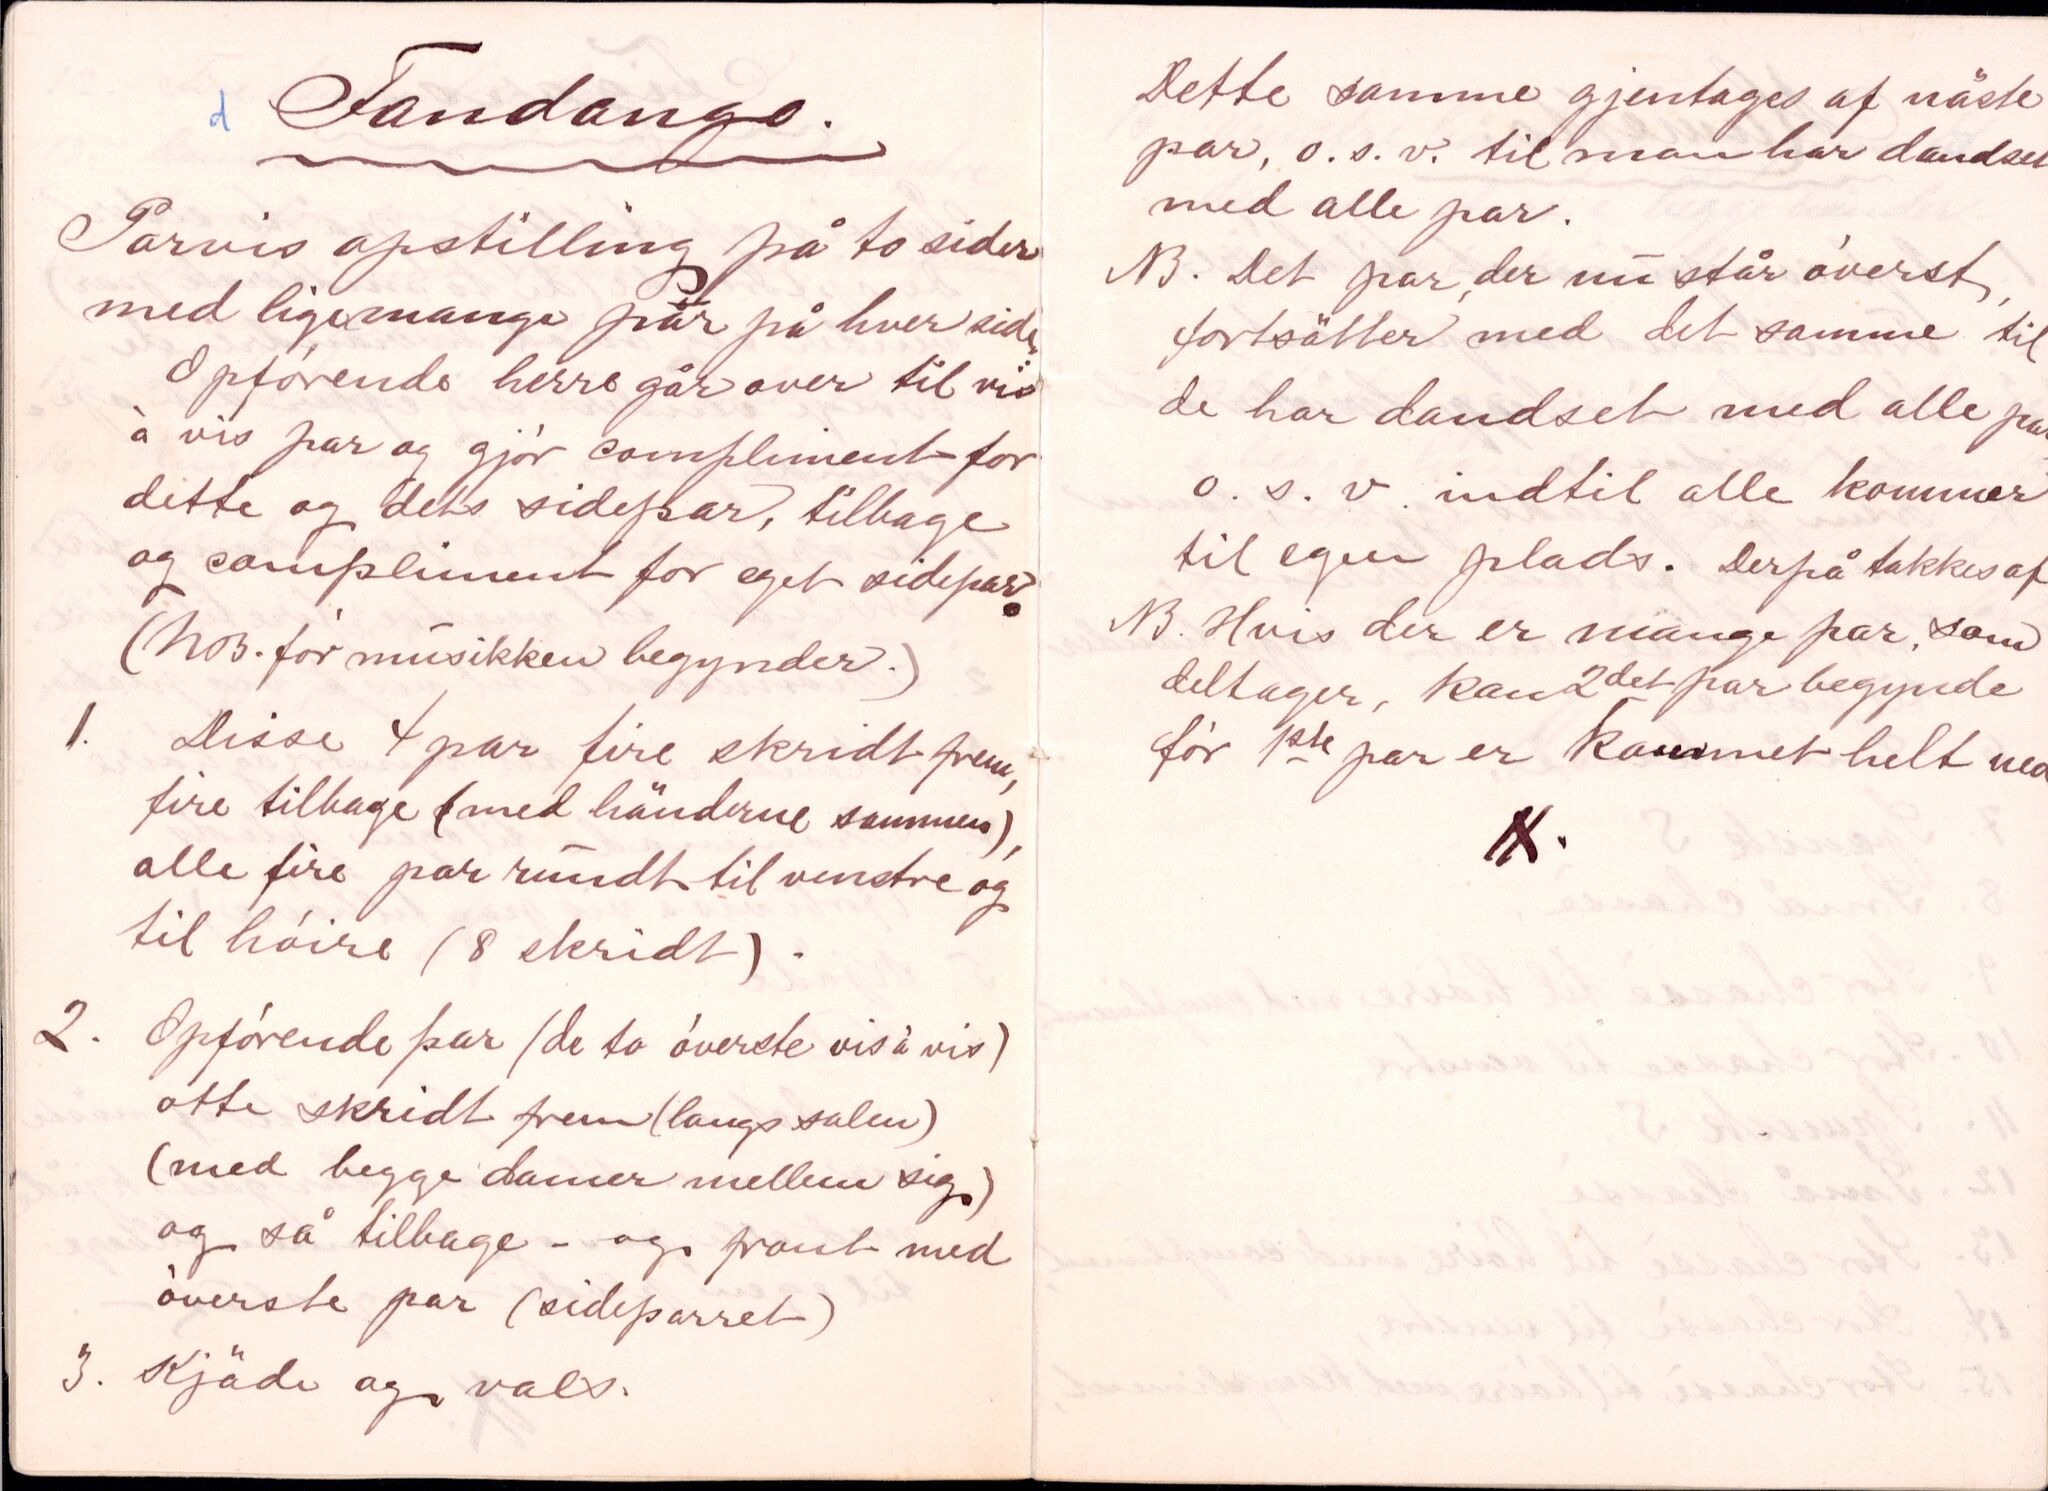 d Fandango.
Parvis opstilling på to sider
med ligemange pär på hver side.
Opförende herre går over til vis
à vis par og gjör compliment for
dette og dets sidepar, tilbage
og compliment for eget sidepar.
(NB. för musikken begynder.)
1. Disse 4 par fire skridt frem,
fire tilbage (med händerne sammen),
alle fire par rundt til venstre og
til höire (8 skridt).
2. Opförende par (de to överste vis à vis)
otte skridt frem (langs salen)
(med begge damer mellem sig)
og så tilbage - og front med
överste par (sideparret)
3. Kjäde og vals.
Dette samme gjentages af näste
par, o. s. v. til man har dandset
med alle par.
NB. Det par, der nu står överst,
fortsätter med det samme til
de har dandset med alle par
o. s. v. indtil alle kommer
til egen plads. Derpå takkes af
NB. Hvis der er mange par, som
deltager, kan 2det par begynde
för 1ste par er kommet helt ned